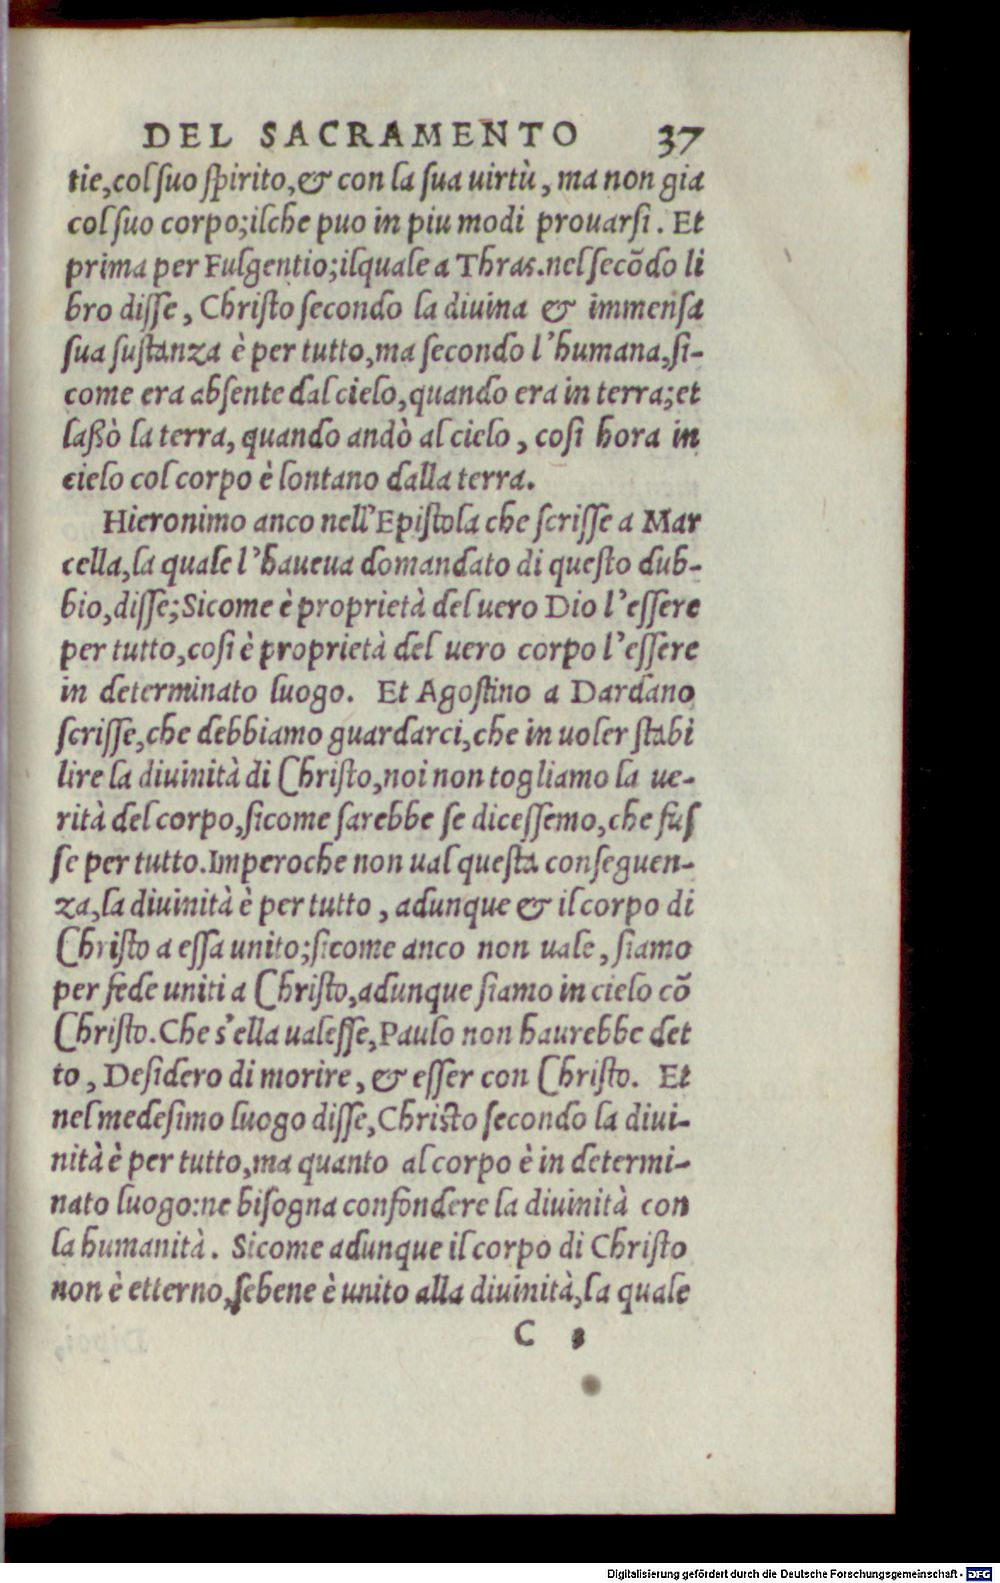 DEL SACRAMENTO 37
tie, col suo spirito, & con la sua uirtù, ma non gia
col suo corpo; ilche puo in piu modi prouarsi. Et
prima per Fulgentio; ilquale a Thras. nel secōdo li
bro disse, Christo secondo la diuina & immensa
sua sustanza è per tutto, ma secondo l'humana, si-
come era absente dal cielo, quando era in terra; et
laßò la terra, quando andò al cielo, cosi hora in
cielo col corpo è lontano dalla terra.
Hieronimo anco nell'Epistola che scrisse a Mar
cella, la quale l'haueua domandato di questo dub-
bio, disse; Sicome è proprietà del uero Dio l'essere
per tutto, cosi è proprietà del uero corpo l'essere
in determinato luogo. Et Agostino a Dardano
scrisse, che debbiamo guardarci, che in uoler stabi
lire la diuinità di Christo, noi non togliamo la ue-
rità del corpo, sicome sarebbe se dicessemo, che fus
se per tutto. Imperoche non ual questa conseguen-
za, la diuinità è per tutto, adunque & il corpo di
Christo a essa unito; sicome anco non uale, siamo
per fede uniti a Christo, adunque siamo in cielo cō
Christo. Che s'ella ualesse, Paulo non haurebbe det
to, Desidero di morire, & esser con Christo. Et
nel medesimo luogo disse, Christo secondo la diui-
nità è per tutto, ma quanto al corpo è in determi-
nato luogo: ne bisogna confondere la diuinità con
la humanità. Sicome adunque il corpo di Christo
non è etterno, sebene è unito alla diuinità, la quale
C
Digitalisierung gefördert durch die Deutsche Forschungsgemeinschaft - DFG